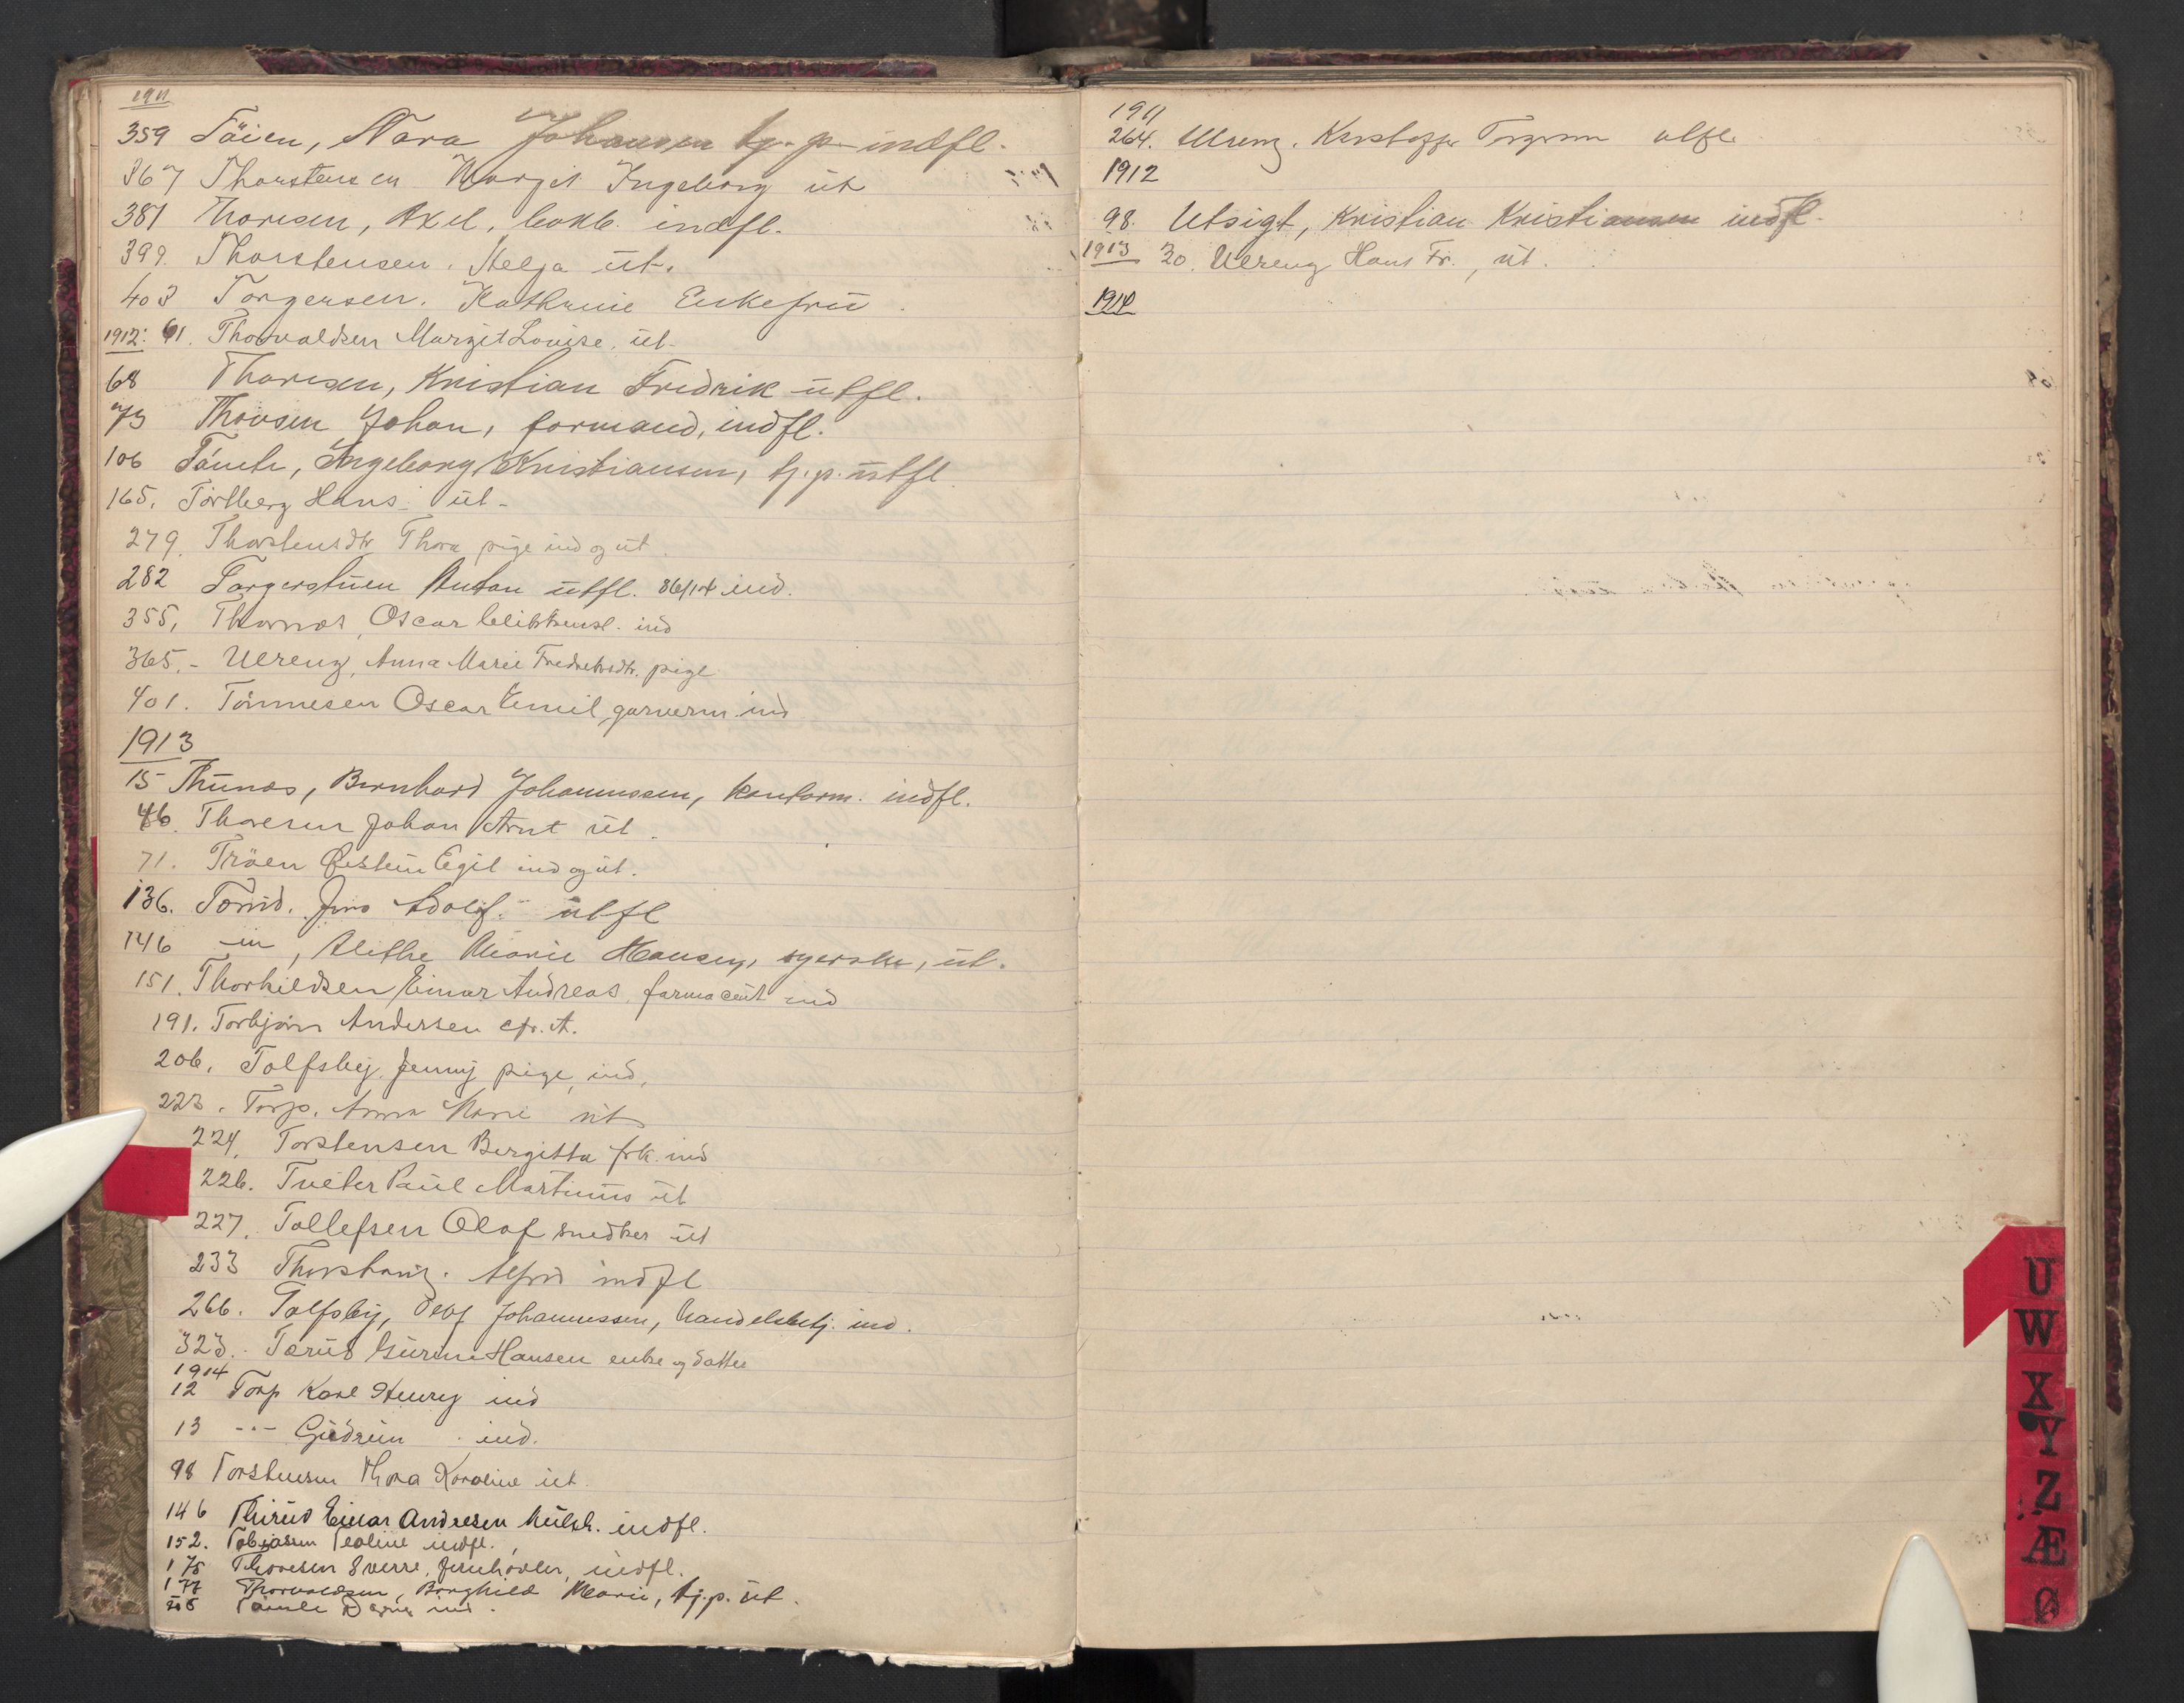 1911
359 Töien, Nara Johansen tj.p. indfl.
367 Thorstensen Margit Ingeborg ut
381 Thoresen, Axel, indfl.
399. Thorstensen. Helga ut.
403 Torgersen. Kathrine Enkefru
1912: 61. Thorvaldsen Margit Louise. ut.
68 Thoresen, Kristian Fredrik utfl.
73 Johan, formand, indfl.
106 Ingeborg Kristiansen, tj.p. utfl.
165. Törtberg Hans ut.
279. Thorstensdtr Thora pige ind og ut.
282 Torgerstuen Anton utfl. 86/14 ind.
355, Thornes, Oscar ind
365.- Ulreng, Anna Marie Fredriksdtr. pige
401. Tönnesen Oscar Emil, garverm. ind
1913
15 Thunæs, Bernhard Johannessen, kontorm. indfl.
46. Thoresen Johan Arnt ut.
71. Tröen Øistein Egil ind og ut.
136. Adolf. utfl
146 -"-, Alethe Marie Hansen, syerske, ut.
151. Thorkildsen Einar Andreas, farmaceut ind
191. Torbjörn Andersen cfr. A.
206. Tolfsby, Jenny pige, ind,
223. Torp. Anna Marie ut
224, Torstensen Bergitta frk. ind
226. Tveter Paul Martinus ut
227, Tollefsen Olaf snedker ut
233 Alfred indfl
266. Tolfsby, Olaf Johannessen, handelsbetj. ind.
323. Tærud Gurine Hansen enke og datter
1914
12 Torp Karl Henry ind
13 -"- Gudrun . ind.
98 Torstensen Thora Karoline ut.
146 Einar Andresen indfl.
152. Tobiassen Teoline indfl.
175 Thoresen Sverre, Jernhøvler, indfl.
177 Thorvaldsen, Borghild Marie, tj.p. ut.
ind.
1911
264. Ulreng. Kristoffer utfl.
1912
98. Utsigt, Kristian Kristiansen indfl.
1913 30. Ulreng Hans Fr., ut.
1914
U
W
X
Y
Z
Æ
Ø